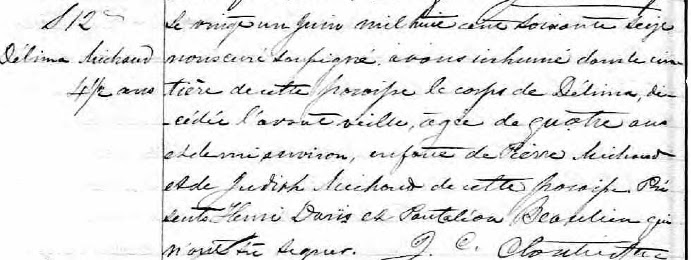 S 12
Délima Michaud
4½ ans
Le vingt un Juin mil huit cent soixante seize
nous curé soussigné, avons inhumé dans le cime
tière de cette paroisse le corps de Délima, dé-
cédée l'avant veille, agée de quatre ans
et demi environ, enfant de Pierre Michaud
et de Judith Michaud de cette paroisse Pré
sents Henri Davis et Pantaléon Beaulieu qui
n'ont su signer. J. C. Cloutier